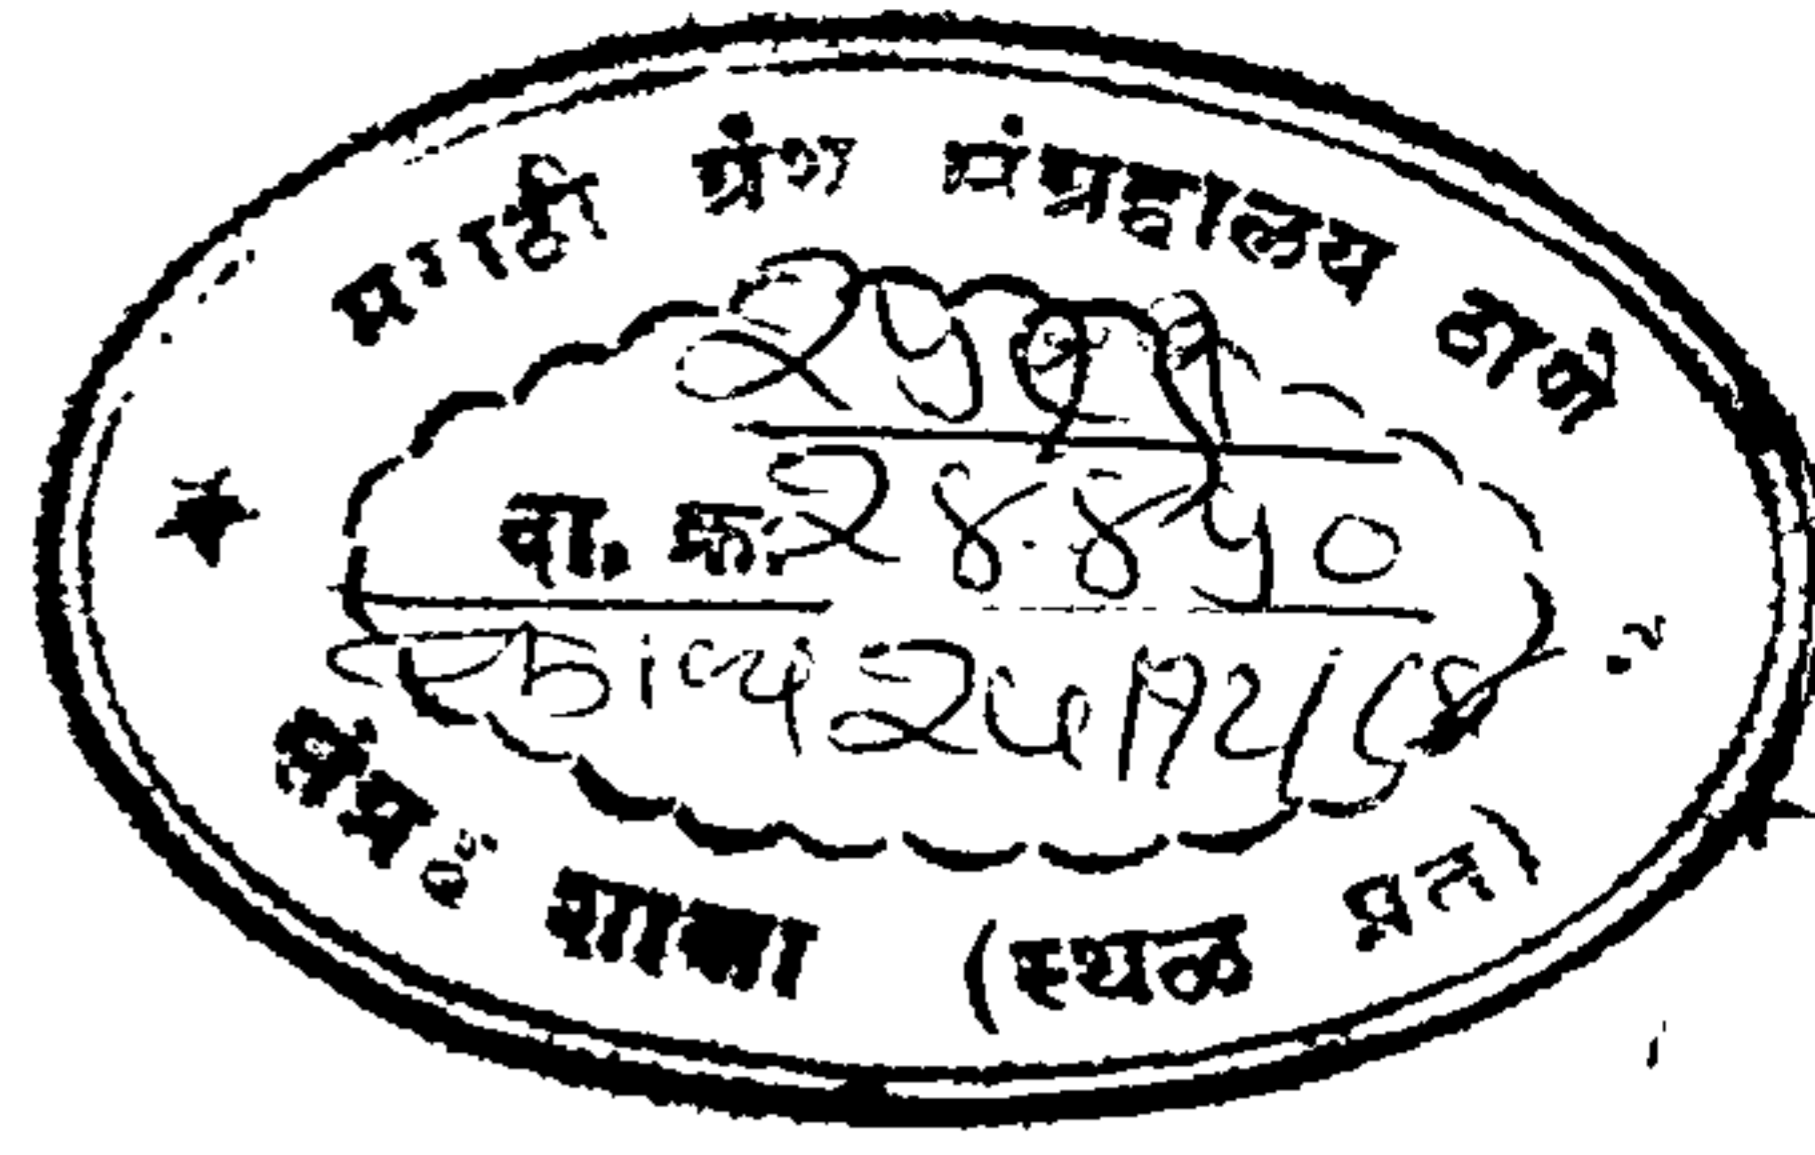 मराठी ग्रंथ संग्रहालय ठाणे
दा. क्र. २४४५०
काव्य
संग्रह शाखा (स्थळ प्रत)